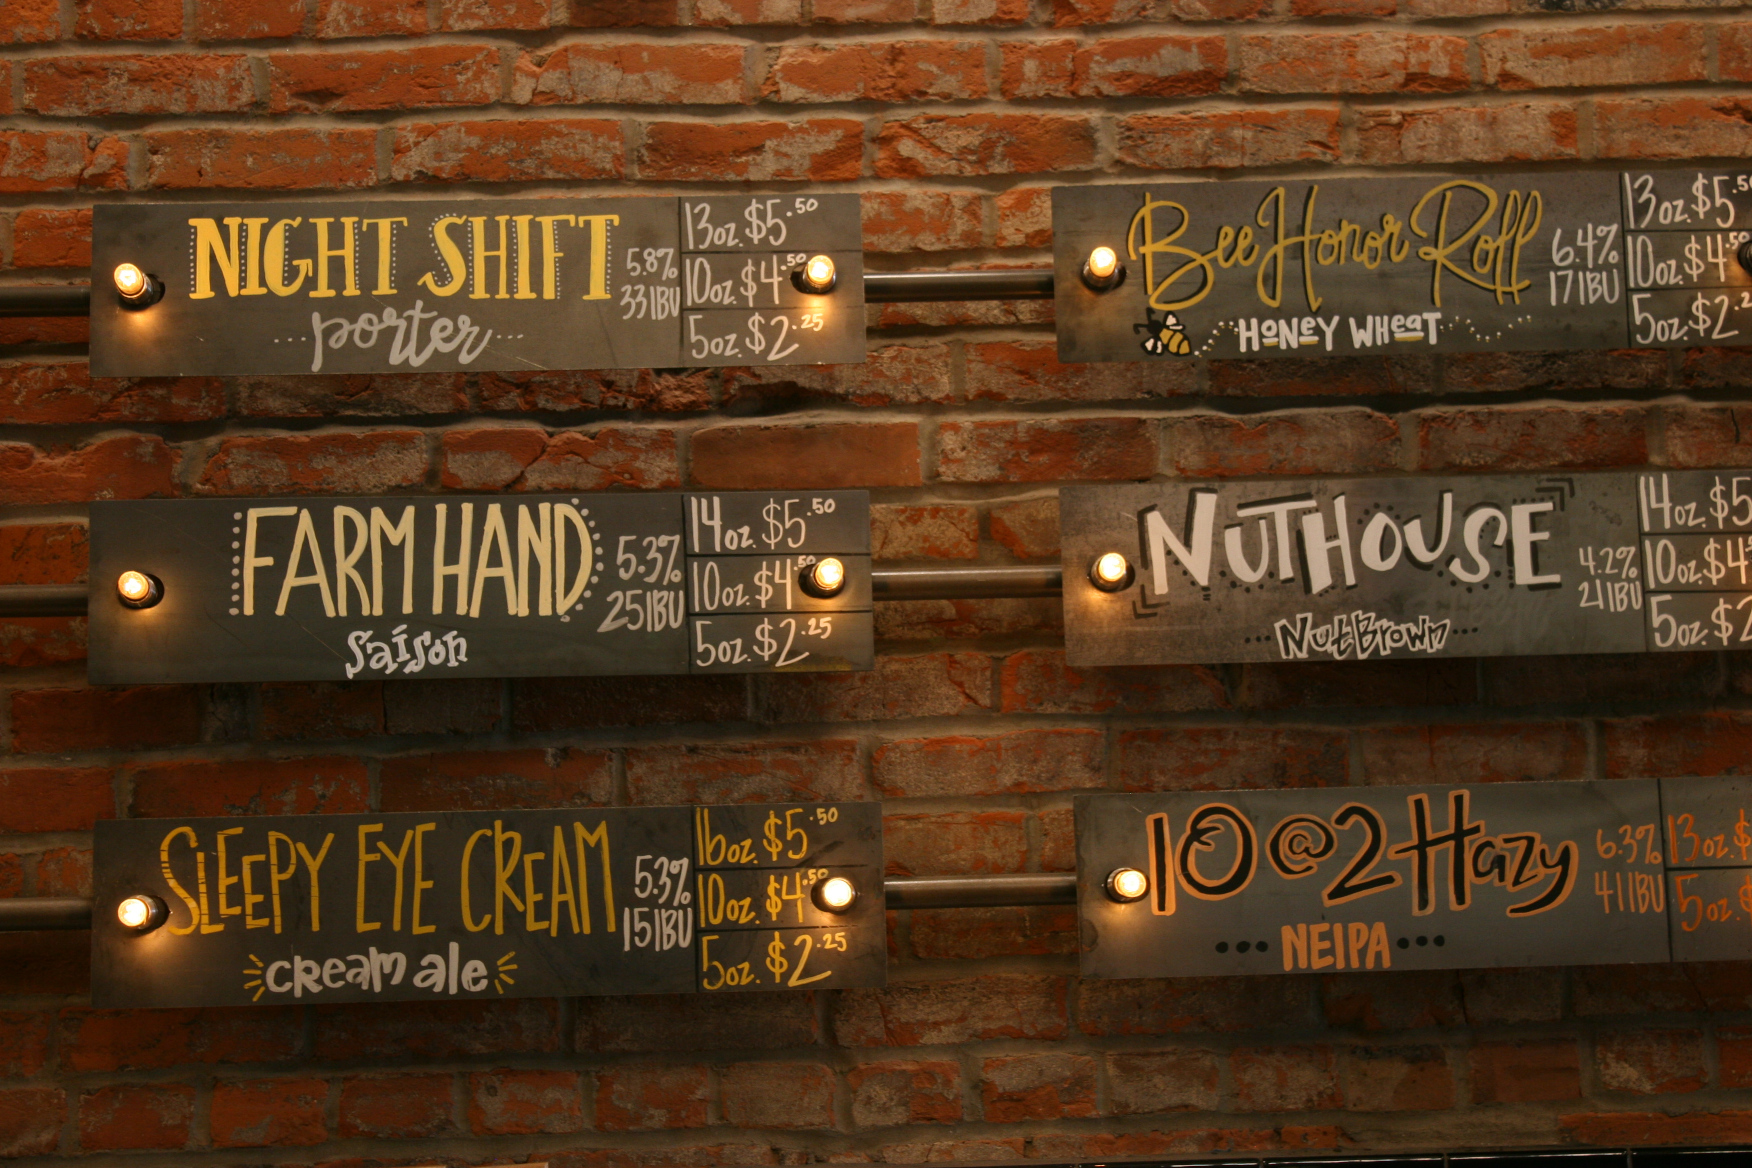 NIGHT SHIFT
porter
5.8%
33 IBU
13oz. $5.50
10oz. $4.50
5oz. $2.25
Bee Honor Roll
HONEY WHEAT
6.4%
17 IBU
13oz. $5.50
10oz. $4.50
5oz. $2.2
FARM HAND
Saison
5.3%
25 IBU
14oz. $5.50
10oz. $4.50
5oz. $2.25
NUTHOUSE
Nut Brown
4.2%
21 IBU
14oz. $5
10oz. $4
5oz. $2
SLEEPY EYE CREAM
cream ale
5.3%
15 IBU
16oz. $5.50
10oz. $4.50
5oz. $2.25
10@2 Hazy
NEIPA
6.3%
41 IBU
13oz. $
5oz. $